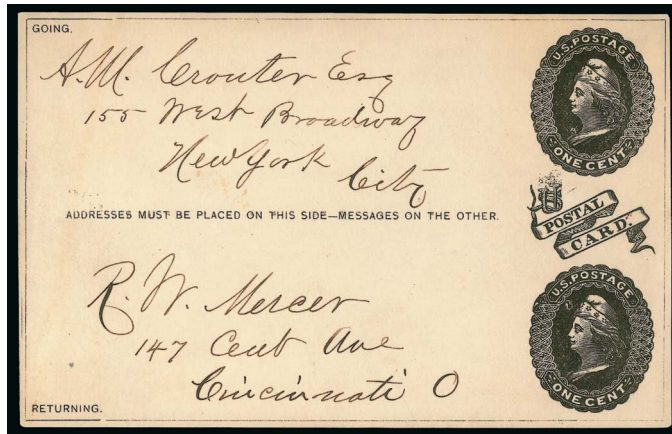 GOING.
A. M. Crouter Esq
155 West Broadway
New York
City
U.S. POSTAGE
ONE CENT
ADDRESSES MUST BE PLACED ON THIS SIDE—MESSAGES ON THE OTHER.
U S
POSTAL
CARD.
R. W. Mercer
147 Cent Ave
Cincinnati O
U.S. POSTAGE
ONE CENT
RETURNING.